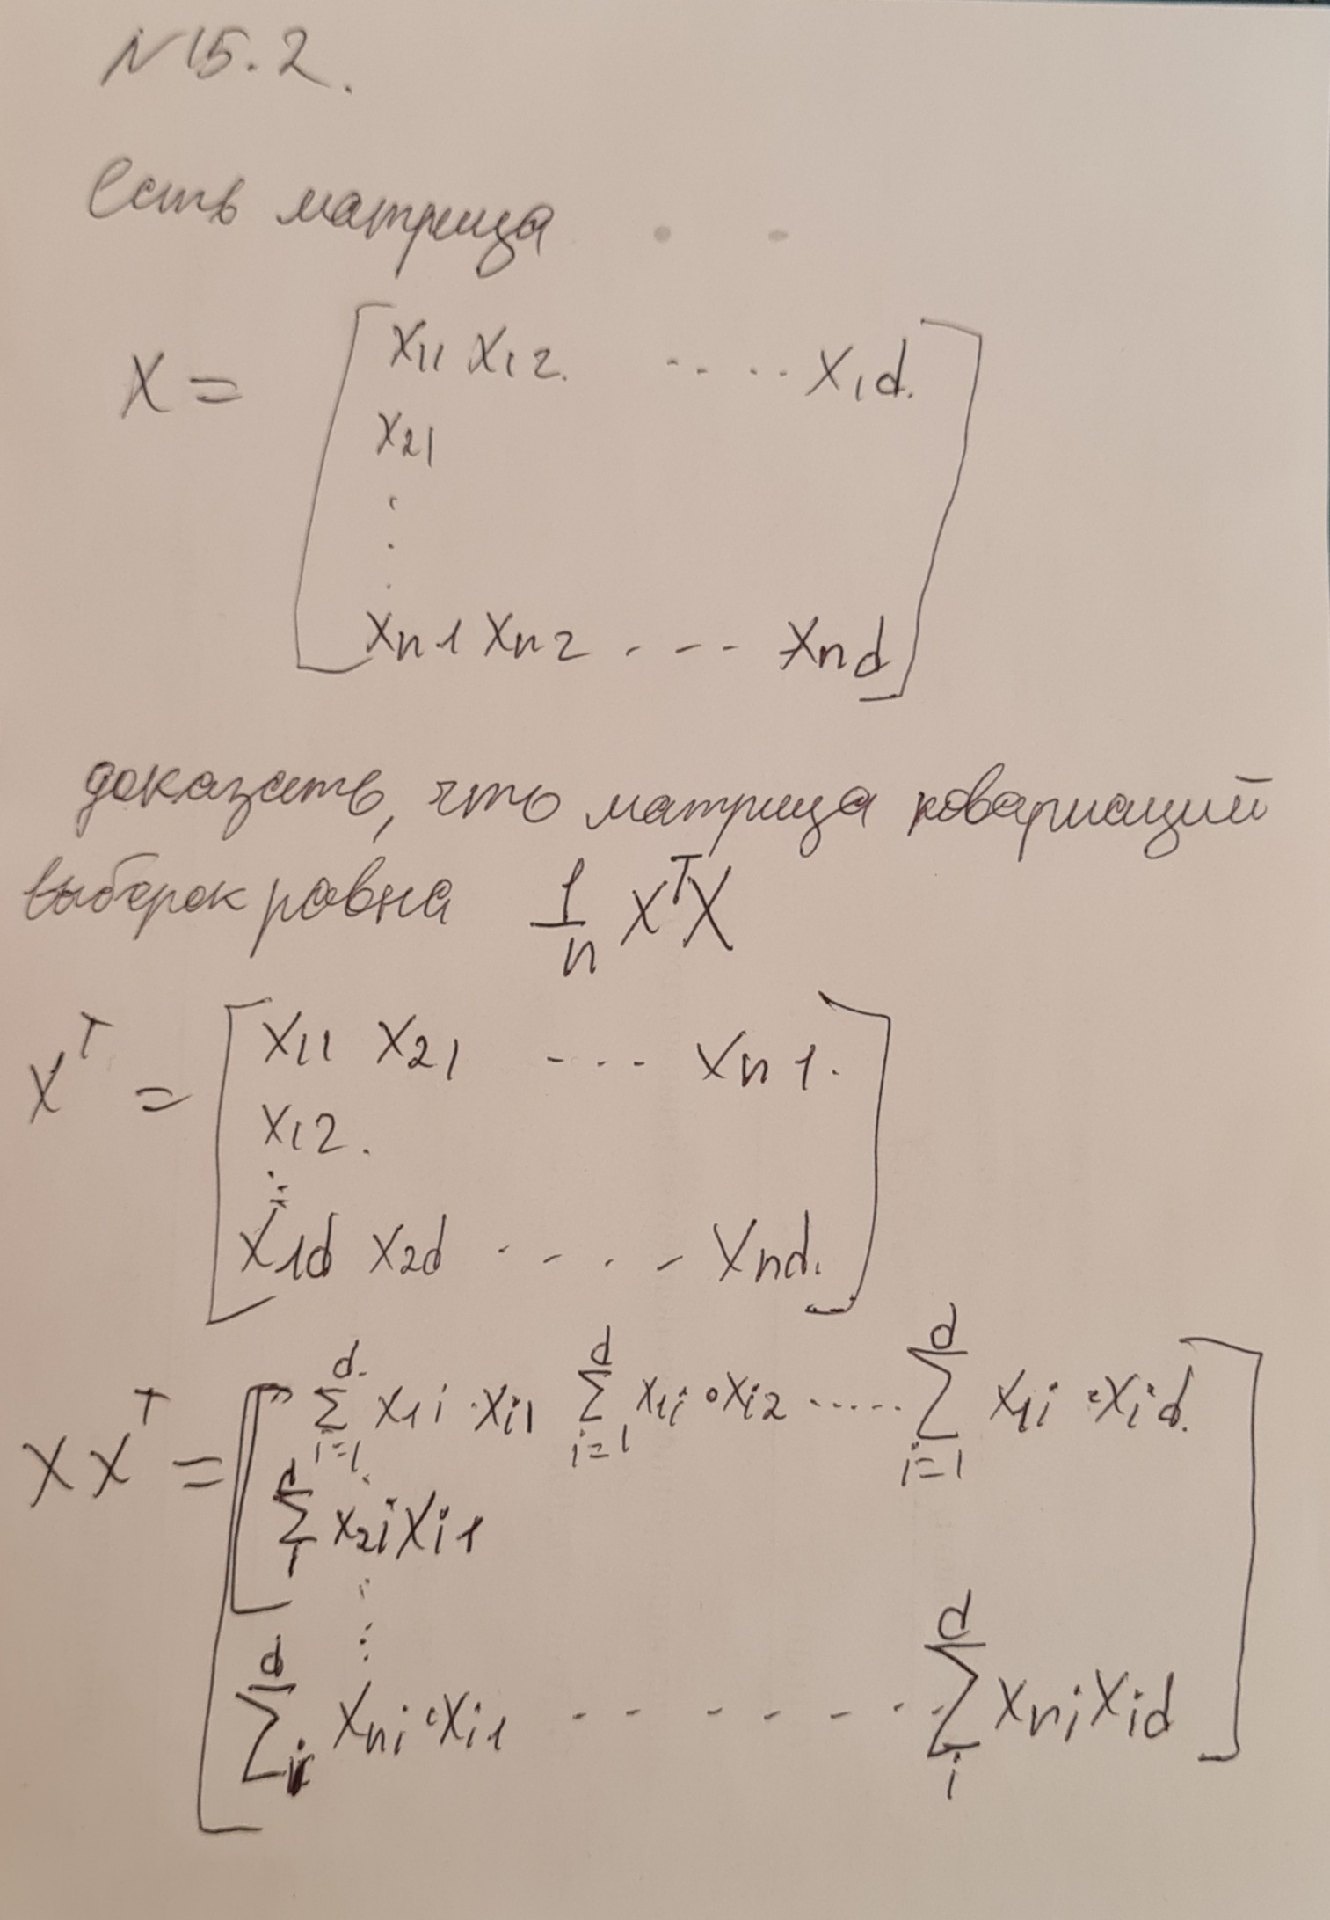 N 15.2.
Есть матрица
X = [ x11 x12. ..... x1d.
x21
⋮
xn1 xn2 . - - - xnd ]
доказать, что матрица ковариаций
выборок равна 1/n X^T X
X^T = [ x11 x21 ... xn1.
x12.
⋮
x1d x2d ..... xnd. ]
X X^T = [ ∑_{i=1}^{d} x1i · xi1 ∑_{i=1}^{d} x1i · xi2 ..... ∑_{i=1}^{d} x1i · xid.
∑_{i}^{d} x2i xi1
⋮
∑_{i}^{d} xni · xi1 - - - - - - ∑_{i}^{d} xni xid ]